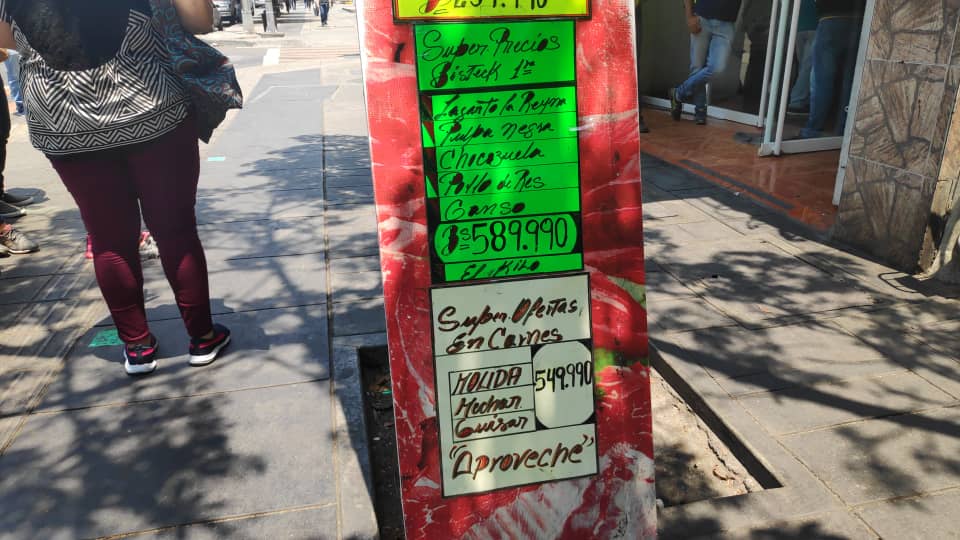 259.990
Super Precios
Bisteck 1ra
Lagarto la Reyna
Pulpa negra
Chocozuela
Pollo de Res
Ganso
Bs 589.990
El Kilo
Super Ofertas
En Carnes
MOLIDA
Mechar
Guisar
549.990
"Aproveche"